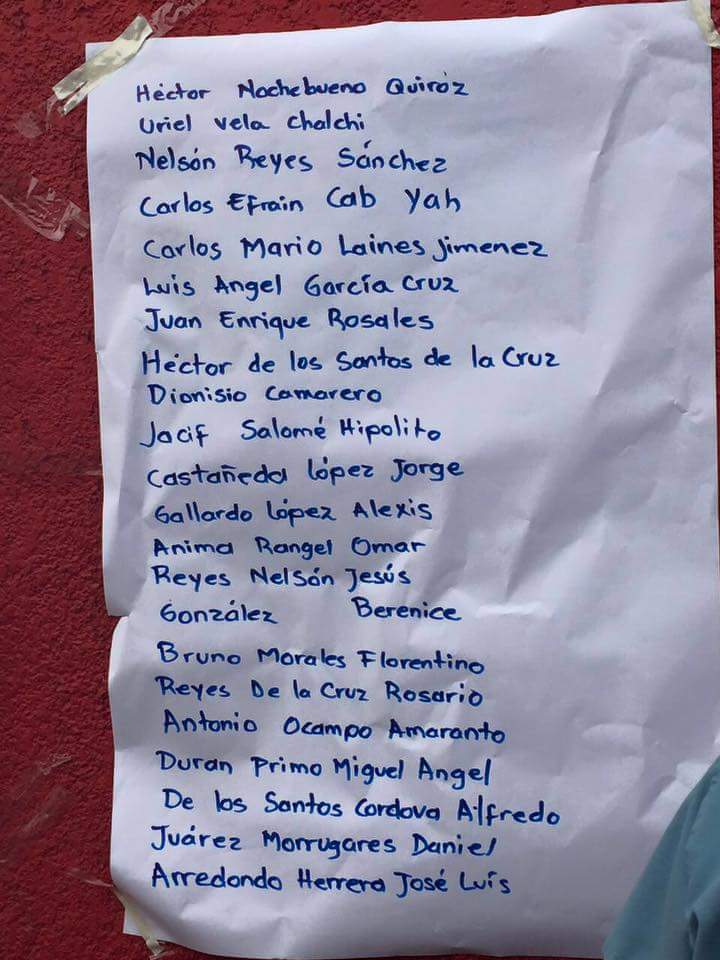 Héctor Nochebueno Quiróz
Uriel Vela Chalchi
Nelsón Reyes Sánchez
Carlos Efrain Cab Yah
Carlos Mario Laines Jimenez
Luis Angel García Cruz
Juan Enrique Rosales
Héctor de los Santos de la Cruz
Dionisio Camarero
Jacif Salomé Hipolito
Castañeda López Jorge
Gallardo López Alexis
Anima Rangel Omar
Reyes Nelsón Jesús
González Berenice
Bruno Morales Florentino
Reyes De la Cruz Rosario
Antonio Ocampo Amaranto
Duran Primo Miguel Angel
De los Santos Cordova Alfredo
Juárez Morrugares Daniel
Arredondo Herrera José Luís